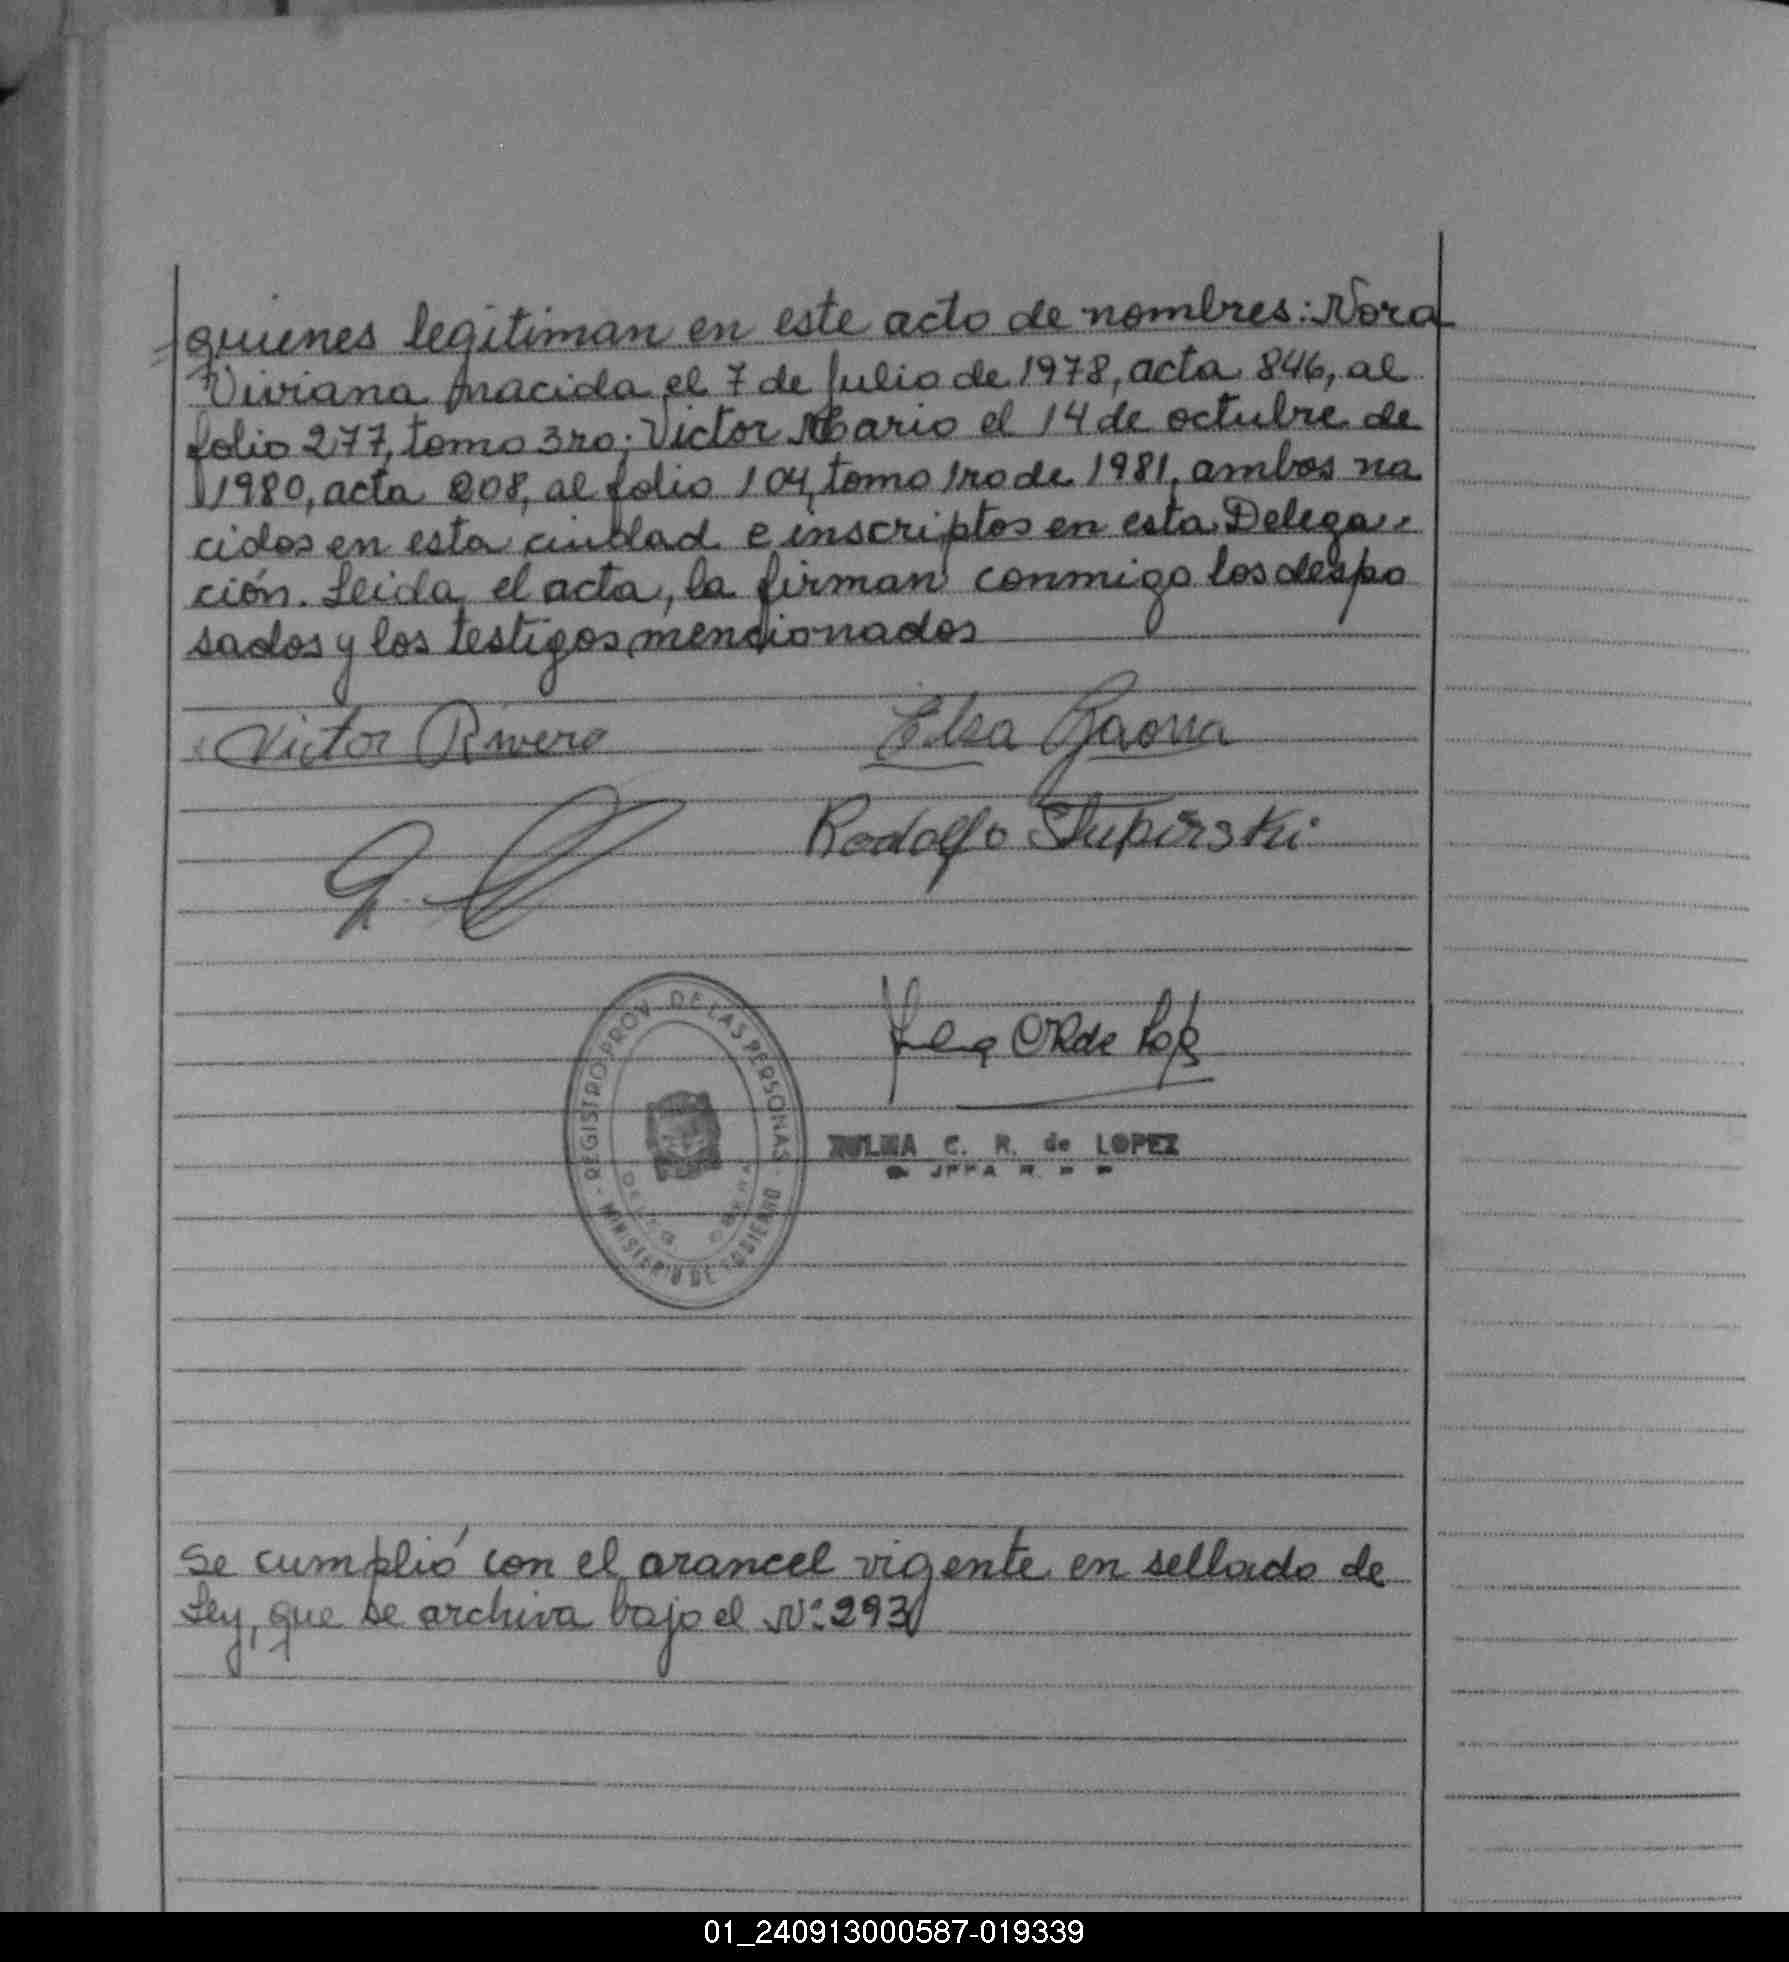 quienes legitiman en este acto de nombres: Nora
Viviana nacida el 7 de Julio de 1978, acta 846, al
folio 277, tomo 3ro; Victor Mario el 14 de octubre de
1980, acta 208, al folio 104, tomo 1ro de 1981, ambos na
cidos en esta ciudad e inscriptos en esta Delega-
ción. Leida el acta, la firman conmigo los despo
sados y los testigos mencionados
Victor Rivero
Elsa Gaona
Rodolfo Stupirski
REGISTRO PROV. DE LAS PERSONAS
MINISTERIO DE GOBIERNO
ZULMA C. R. de LOPEZ
Se cumplió con el arancel vigente en sellado de
Ley, que se archiva bajo el Nº 293
01_240913000587-019339